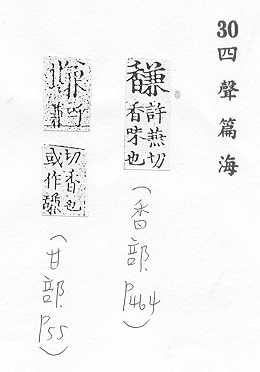 30 四聲篇海
馦 許燕切
香味也
(香部 P464)
切香也
或作
(甘部 P55)